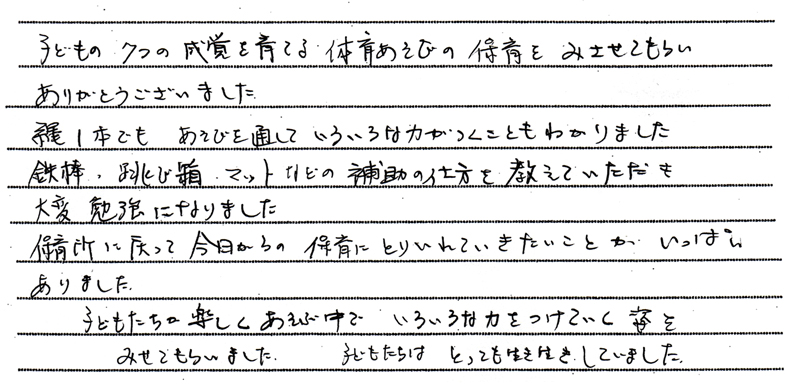 子どもの 7つの 感覚を育てる 体育あそびの 保育を みさせてもらい
ありがとうございました.
縄1本でも あそびを通して いろいろな力がつくこともわかりました
鉄棒、跳び箱、マットなどの 補助の仕方を 教えていただき
大変 勉強になりました
保育所に戻って 今日からの 保育に とりいれていきたいことが いっぱい
ありました.
子どもたちが 楽しく あそぶ中で いろいろな力をつけていく 姿を
みせてもらいました. 子どもたちは とっても生き生きしていました.